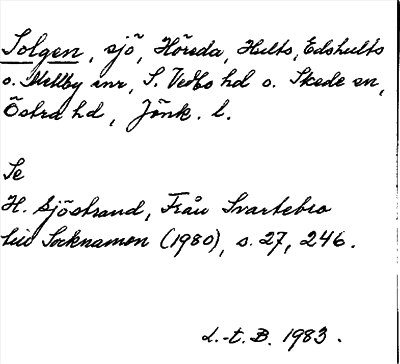 Solgen, sjö, Höreda, Hults, Edshults
o. Mellby snr, S. Vedbo hd o. Skede sn,
Östra hd, Jönk. l.
Se
H. Sjöstrand, Från Svartebro
till Socknamen (1980), s. 27, 246.
L.-t. B. 1983.